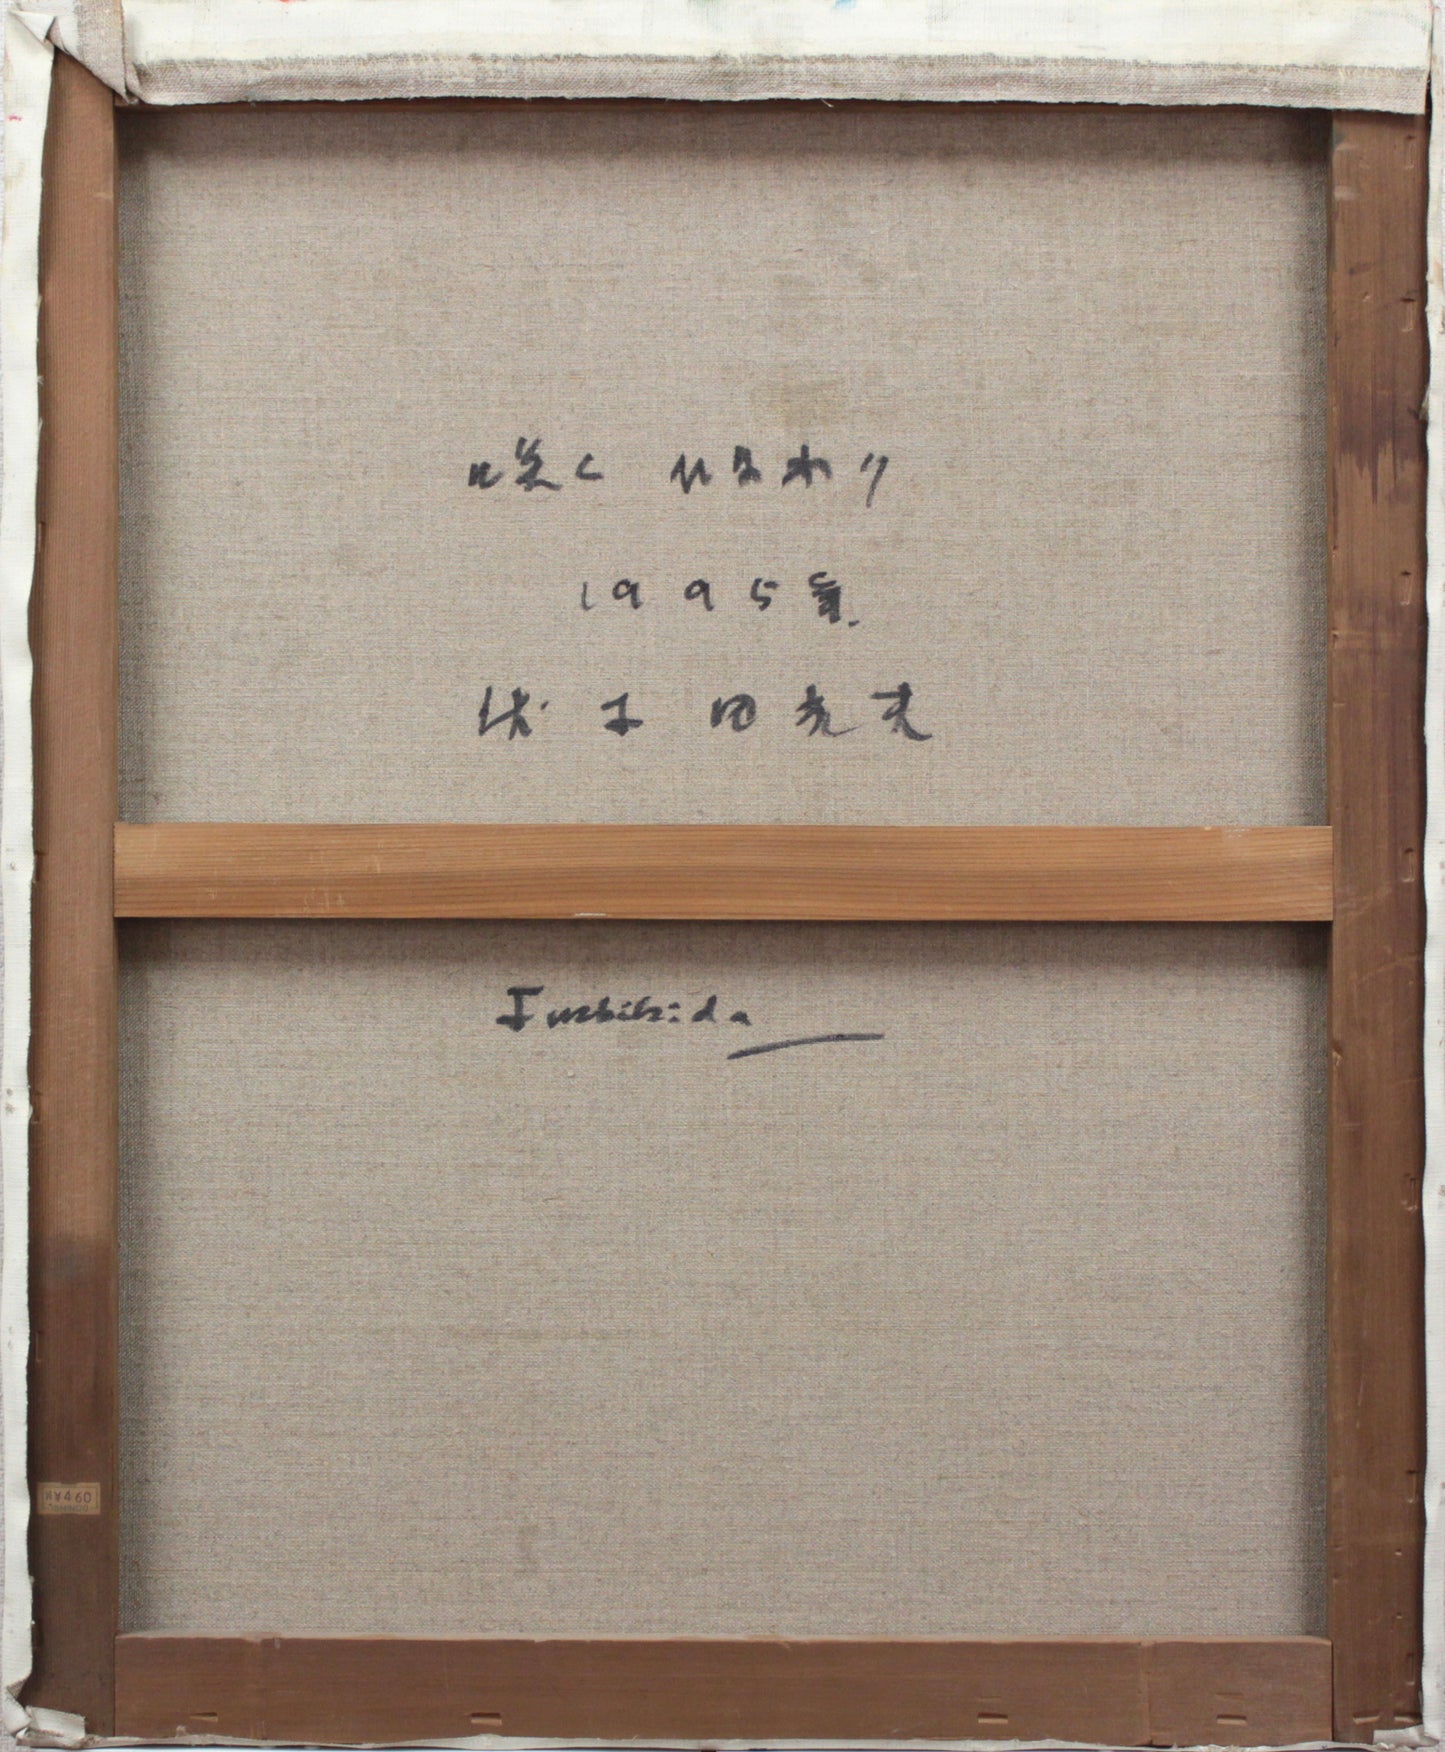 咲くひまわり
1995年
伏木田光夫
Fushikida
¥460